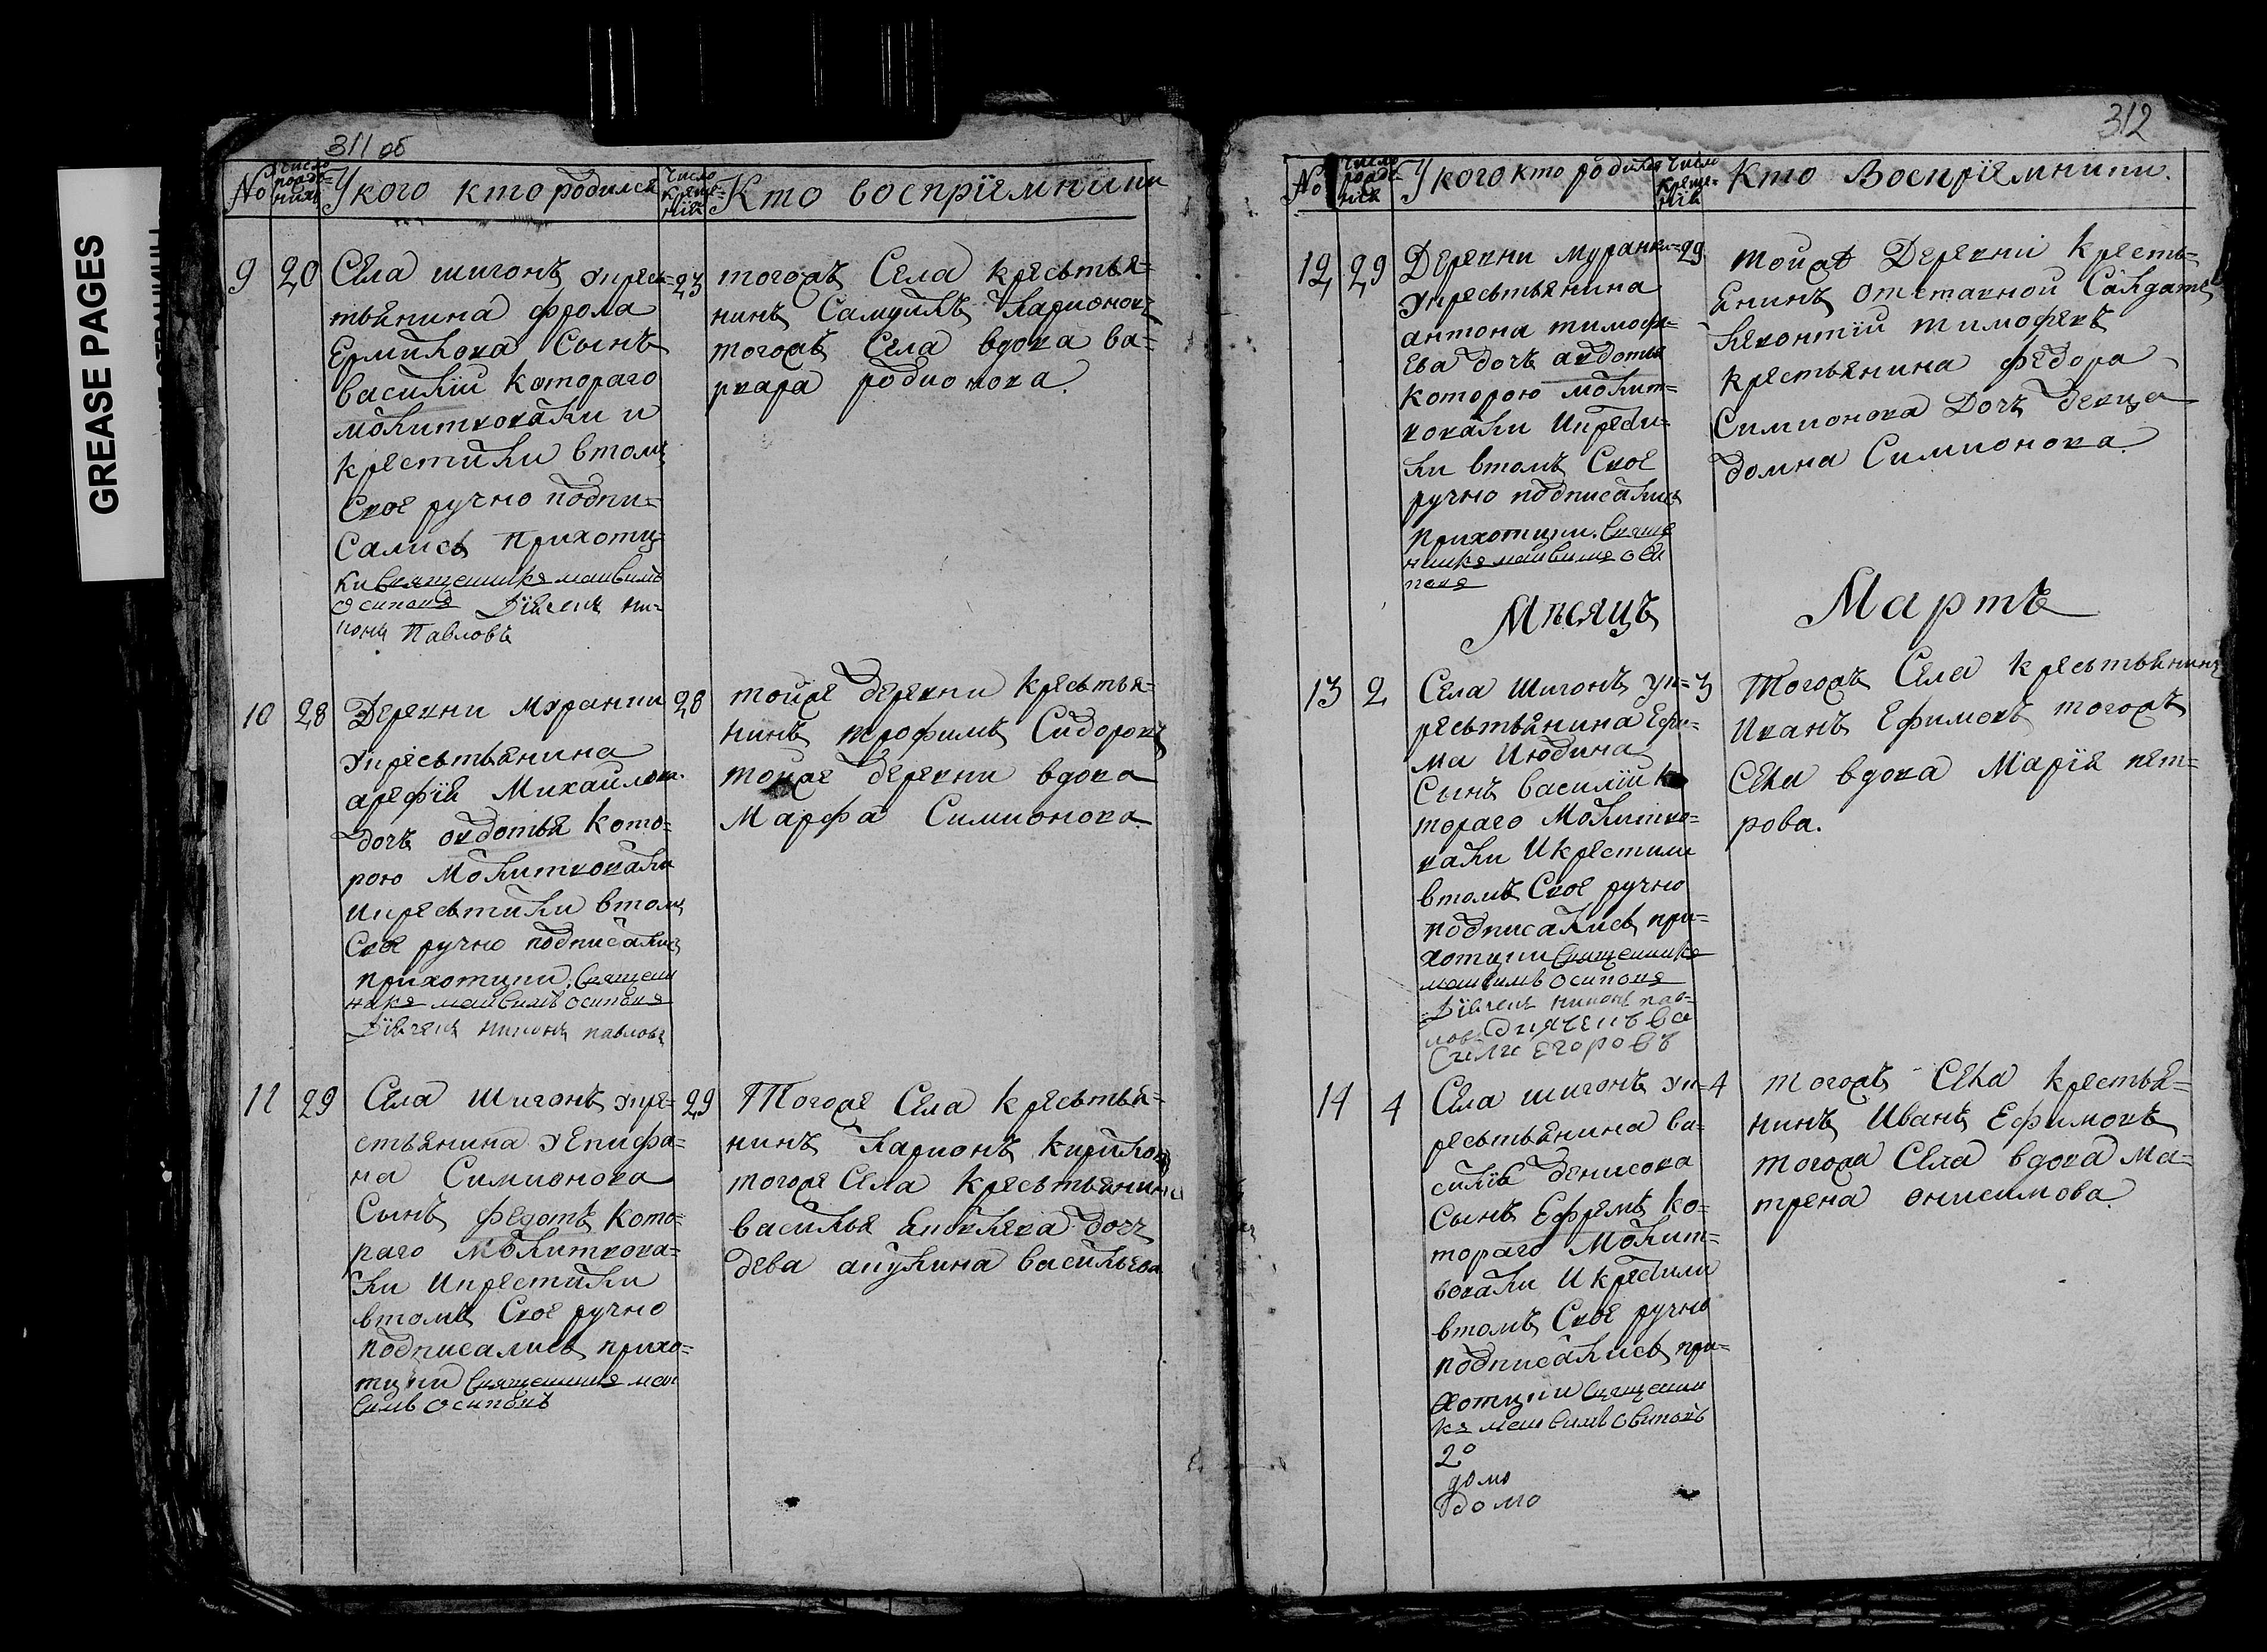 GREASE PAGES
311 об
No
число рожде-ния
У кого кто родился
число креще-нія
Кто воспріемники
9
20
Села шигонъ укресь=
тьянина фрола
Ермилова Сынъ
василій котораго
молитвовали и
крестили втомъ
Свое ручно подпи=
Сались прихотц
ки Священникъ маѯимъ
осиповъ Діячекъ ни=
конъ Павловъ
23
тогожъ Села крестья=
нинъ Самуилъ Ларионовъ
тогожъ Села вдова ва=
рвара родионова
10
28
Деревни муранки
укресьтьянина
арефія Михайлова
дочь овдотья кото=
рою Молитвовали
икресьтили втомъ
Свое ручно подписались
прихотцки Священ
никъ маѯимъ осиповъ
Діячекъ никонъ павловъ
28
тойже деревни кресьтья=
нинъ трофимъ Сидоровъ
тойже деревни вдова
Марфа Симионова
11
29
Села Шигонъ укре=
стьянина уЕпифа=
на Симионова
Сынъ федотъ кото=
раго молитвова=
ли икрестили
втомъ Свое ручно
подписались прихо=
тцки Священникъ маѯ
симъ осиповъ
29
Тогоже Села кресьтья=
нинъ Ларионъ кирилов
тогоже Села кресьтьянина
василья дочь
дева акулина васильева
312
No
число рожде нія
У кого кто родился
число креще=нія
Кто Воспріемники.
12
29
Деревни муранки=
укресьтьянина
антона тимофе=
ева дочь авдотья
которою молит=
вовали икрести=
ли втомъ Свое
ручно подписались
прихотцки. Свяще
никъ маѯимъ оси
повъ
29
тойжъ Деревни кресть=
янинъ отставной Салдатъ
леконтій тимофеевъ
крестьянина федора
Симионова Дочь девица
домна Симионова
Мѣсяцъ Мартъ
13
2
Села Шигонъ ук=
ресьтьянина Ефи=
ма Июдина
Сынъ василій ко
тораго Молитво=
вали И крестили
втомъ Свое ручно
подписались при=
хотцки Священникъ
маѯимъ осиповъ
Діячекъ никонъ пав=
лов диячекъ ва
Сили Егоровъ
3
Тогожъ Села кресьтьянинъ
Иванъ Ефимовъ тогожъ
Села вдова Марія пет=
рова.
14
4
Села шигонъ ук=
ресьтьянина ва=
силія денисова
Сынъ Ефремъ ко=
тораго Молит=
вовали И крестили
втомъ Свое ручно
подписались при=
хотцки Священни
къ маѯимъ осиповъ
2о
домо
домо
4
тогожъ Села крестья=
нинъ Иванъ Ефимовъ
тогожа Села вдова Ма=
трена онисимова